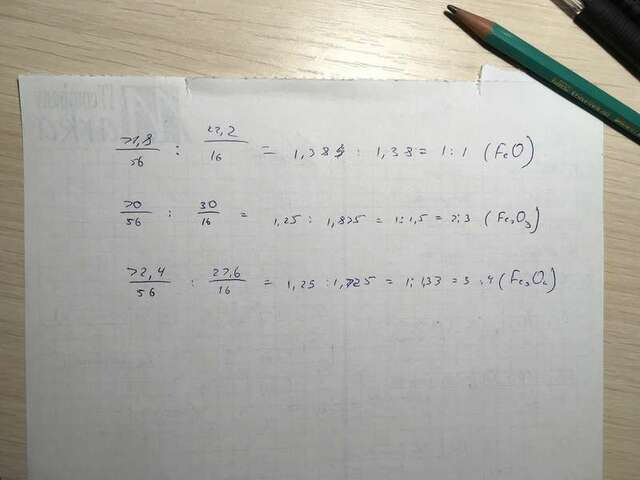 77,8/56 : 22,2/16 = 1,389 : 1,38 = 1:1 (FeO)
70/56 : 30/16 = 1,25 : 1,875 = 1:1,5 = 2:3 (Fe₂O₃)
72,4/56 : 27,6/16 = 1,25 : 1,725 = 1:1,33 = 3:4 (Fe₃O₄)